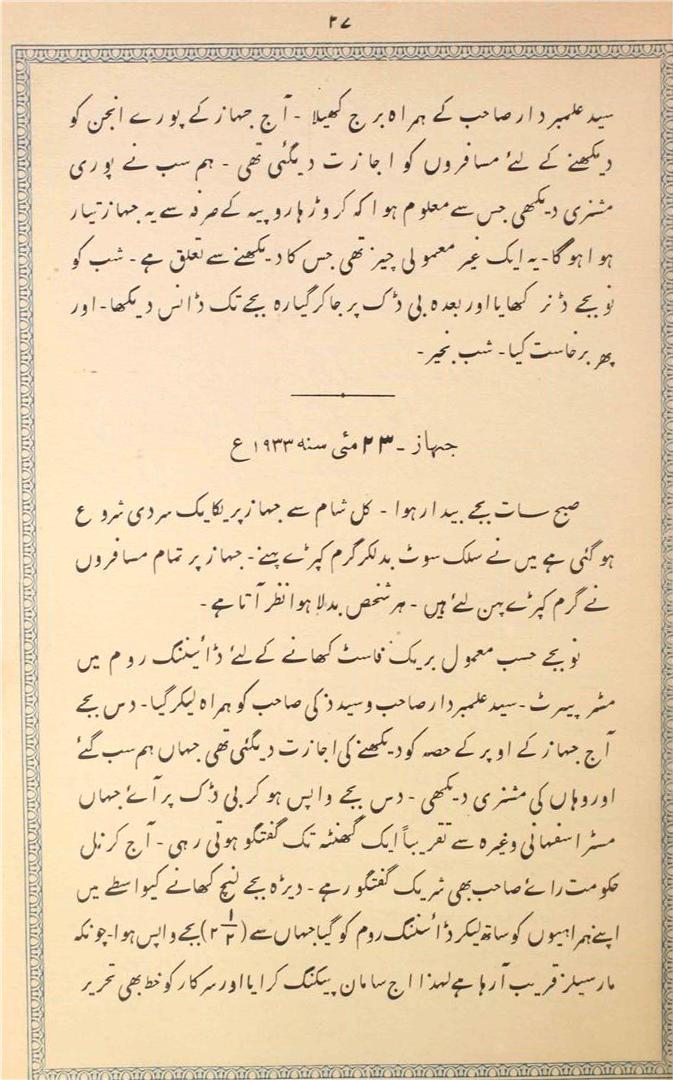 ۲۷
سید علمبردار صاحب کے ہمراہ برج کھیلا - آج جہاز کے پورے انجن کو
دیکھنے کے لئے مسافروں کو اجازت دیگئی تھی - ہم سب نے پوری
مشنری دیکھی جس سے معلوم ہوا کہ کروڑہا روپیہ کے صرفہ سے یہ جہاز تیار
ہوا ہوگا - یہ ایک غیر معمولی چیز تھی جس کا دیکھنے سے تعلق ہے - شب کو
نو بجے ڈنر کھایا اور بعدہ بی ڈک پر جاکر گیارہ بجے تک ڈانس دیکھا - اور
پھر برخاست کیا - شب بخیر -
جہاز - ۲۳ مئی سنہ ۱۹۳۳ع
صبح سات بجے بیدار ہوا - کل شام سے جہاز پر یکایک سردی شروع
ہو گئی ہے میں نے سلک سوٹ بدلکر گرم کپڑے پہنے - جہاز پر تمام مسافروں
نے گرم کپڑے پہن لئے ہیں - ہر شخص بدلا ہوا نظر آتا ہے -
نو بجے حسب معمول بریک فاسٹ کھانے کے لئے ڈائننگ روم میں
مسٹر پیرٹ - سید علمبردار صاحب و سید ذکی صاحب کو ہمراہ لیکر گیا - دس بجے
آج جہاز کے اوپر کے حصہ کو دیکھنے کی اجازت دیگئی تھی جہاں ہم سب گئے
اور وہاں کی مشنری دیکھی - دس بجے واپس ہو کر بی ڈک پر آئے جہاں
مسٹر اسفہانی وغیرہ سے تقریباً ایک گھنٹہ تک گفتگو ہوتی رہی - آج کرنل
حکومت رائے صاحب بھی شریک گفتگو رہے - دیڑہ بجے لنچ کھانے کیواسطے میں
اپنے ہمراہیوں کو ساتھ لیکر ڈائننگ روم کو گیا جہاں سے (۲ ۱/۲) بجے واپس ہوا - چونکہ
مارسیلز قریب آرہا ہے لہذا اج سامان پیکنگ کرایا اور سرکار کو خط بھی تحریر